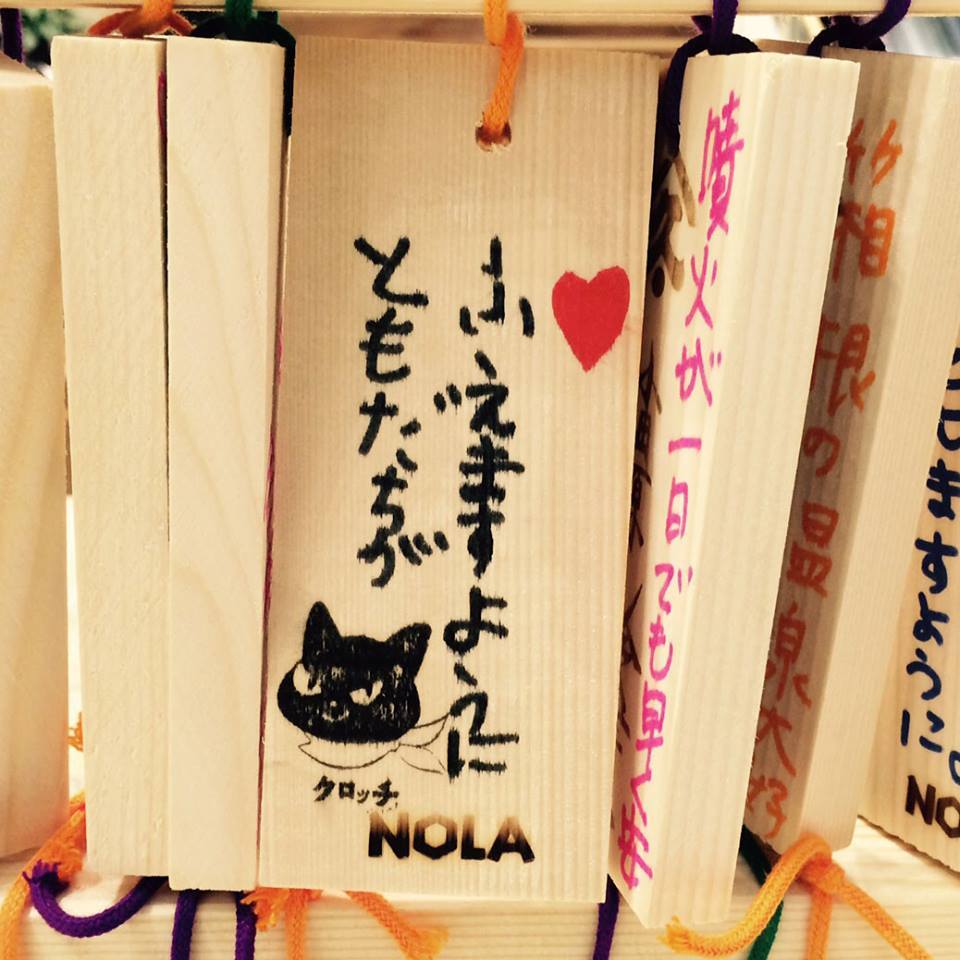 ともだちが
ふえますように
クロッチ
NOLA
噴火が一日でも早くお
箱根の温泉大好
ますように
NO